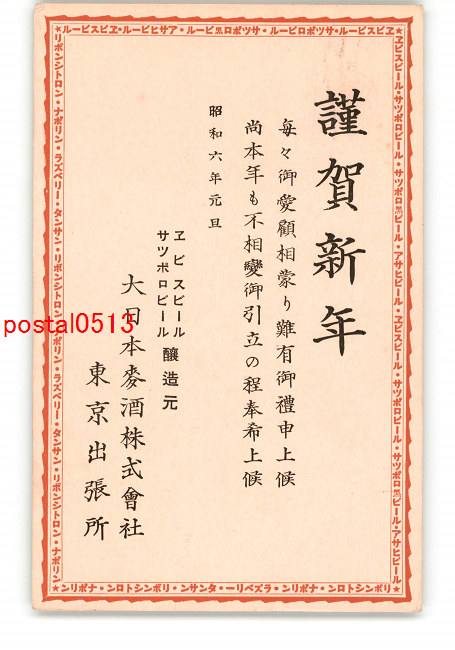 謹賀新年
每々御愛顧相蒙り難有御禮申上候
尚本年も不相變御引立の程奉希上候
昭和六年元旦
ヱビスビール
サツポロビール
釀造元
大日本麥酒株式會社
東京出張所
postal0513
ヱビスビール・サツポロビール・サツポロ黑ビール・アサヒビール・ヱビスビール
ヱビスビール・サツポロビール・サツポロ黑ビール・アサヒビール・ヱビスビール・サツポロビール・サツポロ黑ビール・アサヒビール
リボンシトロン・ナポリン・ラズベリー・タンサン・リボンシトロン・ナポリン・ラズベリー・タンサン・リボンシトロン・ナポリン
リボンシトロン・ナポリン・ラズベリー・タンサン・リボンシトロン・ナポリン